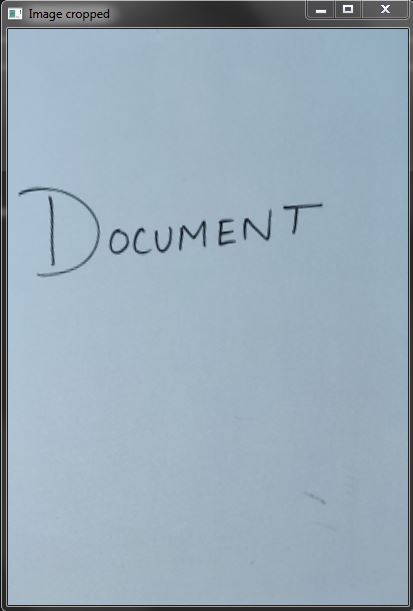 Image cropped
DOCUMENT